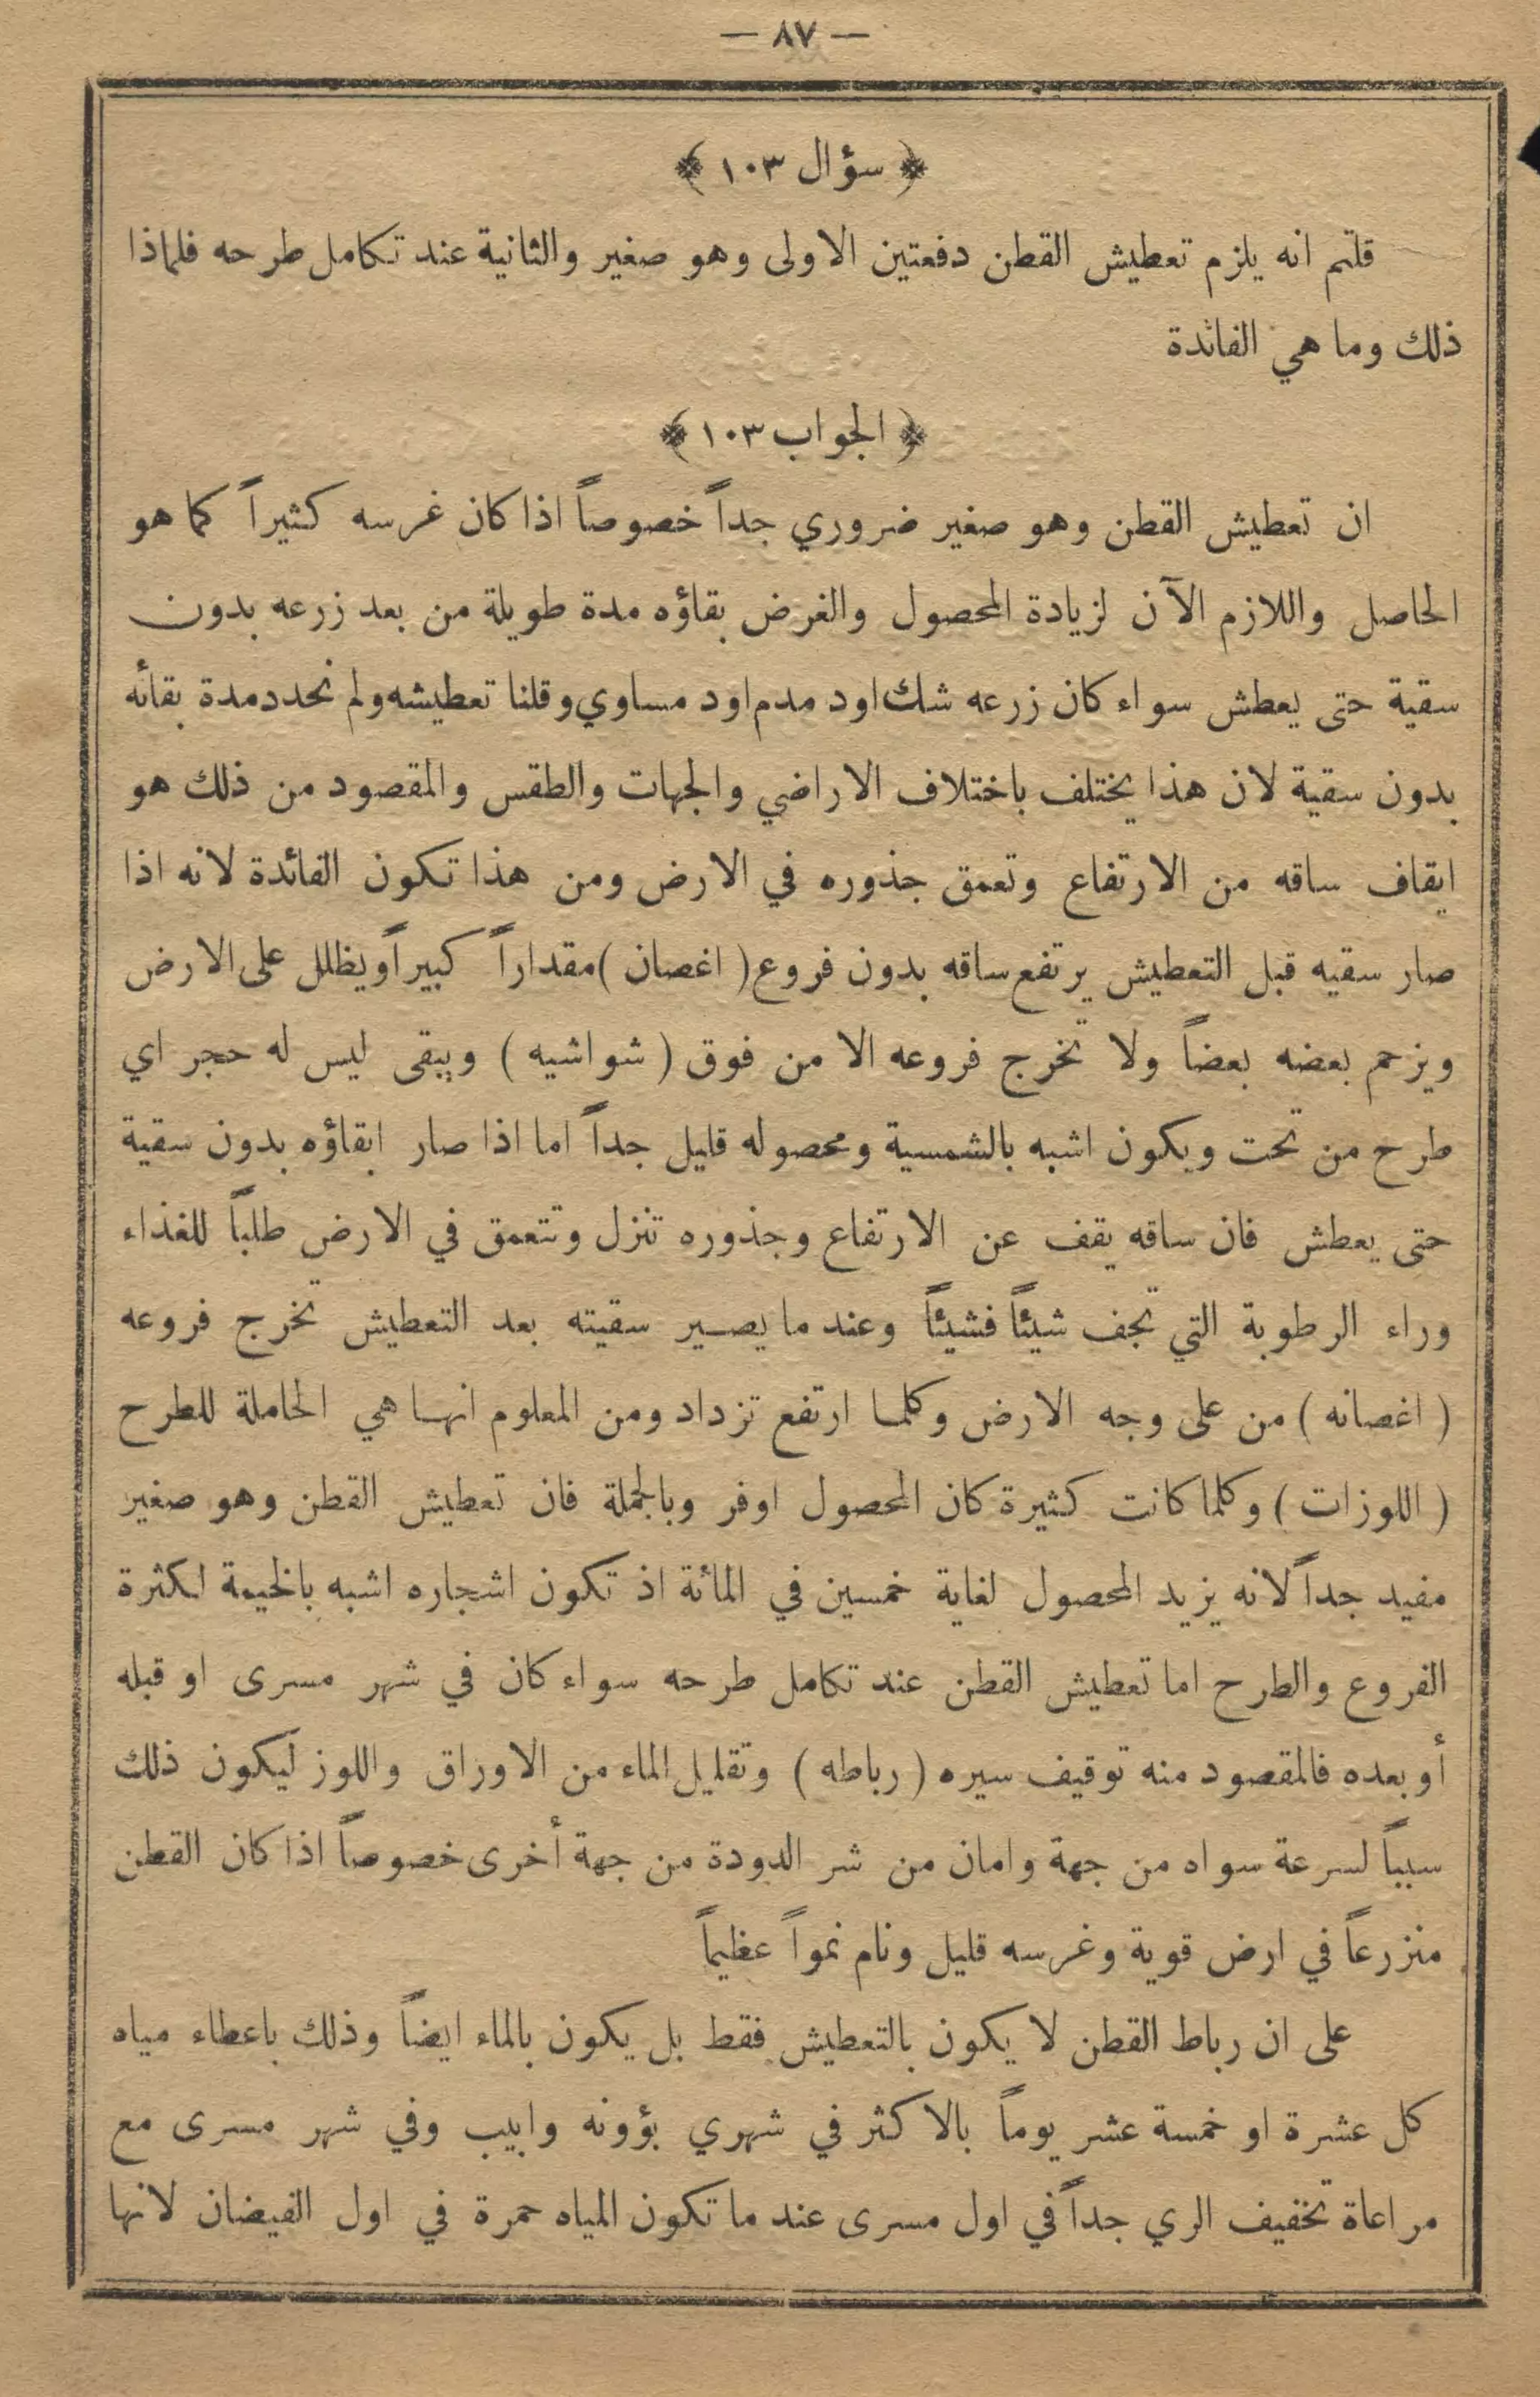 — ٨٧ —
﴿ سؤال ١٠٣ ﴾
قلتم انه يلزم تعطيش القطن دفعتين الاولى وهو صغير والثانية عند تكامل طرحه فلماذا
ذلك وما هي الفائدة
﴿ الجواب ١٠٣ ﴾
ان تعطيش القطن وهو صغير ضروري جداً خصوصاً اذا كان غرسه كثيراً كما هو
الحاصل واللازم الآن لزيادة المحصول والغرض بقاؤه مدة طويلة من بعد زرعه بدون
سقية حتى يعطش سواء كان زرعه شك اود مدم اود مساوي وقلنا تعطيشه ولم نحدد مدة بقائه
بدون سقية لان هذا يختلف باختلاف الاراضي والجهات والطقس والمقصود من ذلك هو
ايقاف ساقه من الارتفاع وتعمق جذوره في الارض ومن هذا تكون الفائدة لانه اذا
صار سقيه قبل التعطيش يرتفع ساقه بدون فروع ( اغصان ) مقداراً كبيراً ويظلل على الارض
ويزحم بعضه بعضاً ولا تخرج فروعه الا من فوق ( شواشيه ) ويبقى ليس له حجر اي
طرح من تحت ويكون اشبه بالشمسية ومحصوله قليل جداً اما اذا صار ابقاؤه بدون سقية
حتى يعطش فان ساقه يقف عن الارتفاع وجذوره تنزل وتتعمق في الارض طلباً للغذاء
وراء الرطوبة التي تجف شيئاً فشيئاً وعند ما يصير سقيته بعد التعطيش تخرج فروعه
( اغصانه ) من على وجه الارض وكلما ارتفع تزداد ومن المعلوم انها هي الحاملة للطرح
( اللوزات ) وكلما كانت كثيرة كان المحصول اوفر وبالجملة فان تعطيش القطن وهو صغير
مفيد جداً لانه يزيد المحصول لغاية خمسين في المائة اذ تكون اشجاره اشبه بالخيمة لكثرة
الفروع والطرح اما تعطيش القطن عند تكامل طرحه سواء كان في شهر مسرى او قبله
أو بعده فالمقصود منه توقيف سيره ( رباطه ) وتقليل الماء من الاوراق واللوز ليكون ذلك
سبباً لسرعة سواه من جهة وامان من شر الدودة من جهة أخرى خصوصاً اذا كان القطن
منزرعاً في ارض قوية وغرسه قليل ونام نمواً عظيماً
على ان رباط القطن لا يكون بالتعطيش فقط بل يكون بالماء ايضاً وذلك باعطاء مياه
كل عشرة او خمسة عشر يوماً بالاكثر في شهري بؤونه وابيب وفي شهر مسرى مع
مراعاة تخفيف الري جداً في اول مسرى عند ما تكون المياه حمرة في اول الفيضان لانها